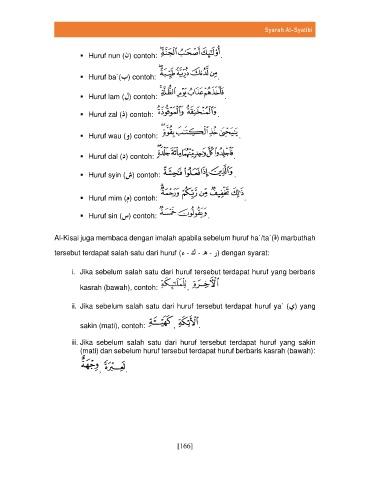 Syarah Al-Syatibi
▪ Huruf nun (ن) contoh: أُوْلَٰٓئِكَ أَصْحَٰبُ ٱلْجَنَّةِ.
▪ Huruf ba´(ب) contoh:
▪ Huruf lam (ل) contoh: فَأَخَذَهُمْ عَذَابُ يَوْمِ ٱلظُّلَّةِ.
▪ Huruf zal (ذ) contoh: وَٱلْمُنْخَنِقَةُ وَٱلْمَوْقُوذَةُ.
▪ Huruf wau (و) contoh: يَٰيَحْيَىٰ خُذِ ٱلْكِتَٰبَ بِقُوَّةٍ.
▪ Huruf dal (د) contoh: فَٱجْلِدُوا۟ كُلَّ وَٰحِدٍ مِّنْهُمَا مِا۟ئَةَ جَلْدَةٍ.
▪ Huruf syin (ش) contoh: وَٱلَّذِينَ إِذَا فَعَلُوا۟ فَٰحِشَةً.
▪ Huruf mim (م) contoh: ذَٰلِكَ تَخْفِيفٌ مِّن رَّبِّكُمْ وَرَحْمَةٌ.
▪ Huruf sin (س) contoh: وَيَقُولُونَ خَمْسَةٌ.
Al-Kisai juga membaca dengan imalah apabila sebelum huruf ha´/ta´(ة) marbuthah
tersebut terdapat salah satu dari huruf (ء - ك - ه - ر) dengan syarat:
i. Jika sebelum salah satu dari huruf tersebut terdapat huruf yang berbaris
kasrah (bawah), contoh: ٱلْءَاخِرَةِ, لِلْمَلَٰٓئِكَةِ.
ii. Jika sebelum salah satu dari huruf tersebut terdapat huruf ya´ (ي) yang
sakin (mati), contoh: ٱلْأَيْكَةِ, كَهَيْـَٔةِ.
iii. Jika sebelum salah satu dari huruf tersebut terdapat huruf yang sakin
(mati) dan sebelum huruf tersebut terdapat huruf berbaris kasrah (bawah):
لَعِبْرَةً, وِجْهَةٌ.
[166]